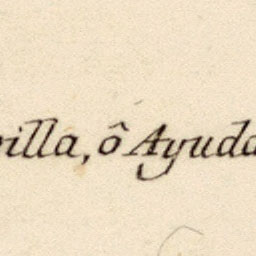 villa, ô Ayuda